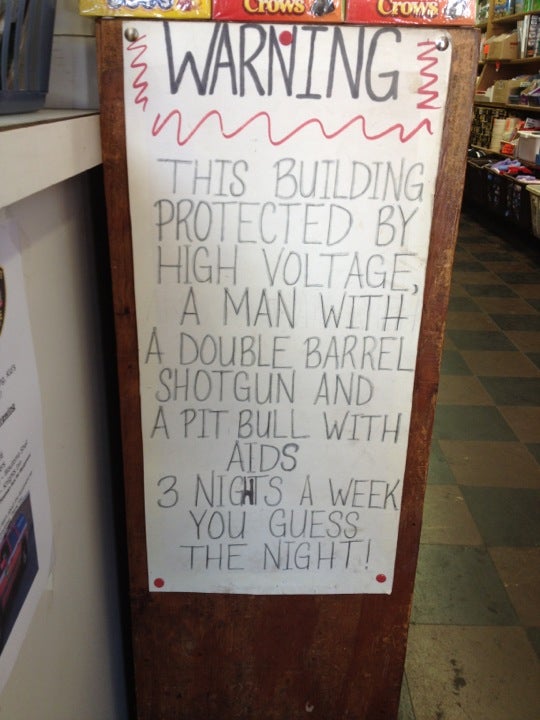 Crows
Crows
WARNING
THIS BUILDING
PROTECTED BY
HIGH VOLTAGE,
A MAN WITH
A DOUBLE BARREL
SHOTGUN AND
A PIT BULL WITH
AIDS
3 NIGHTS A WEEK
YOU GUESS
THE NIGHT!